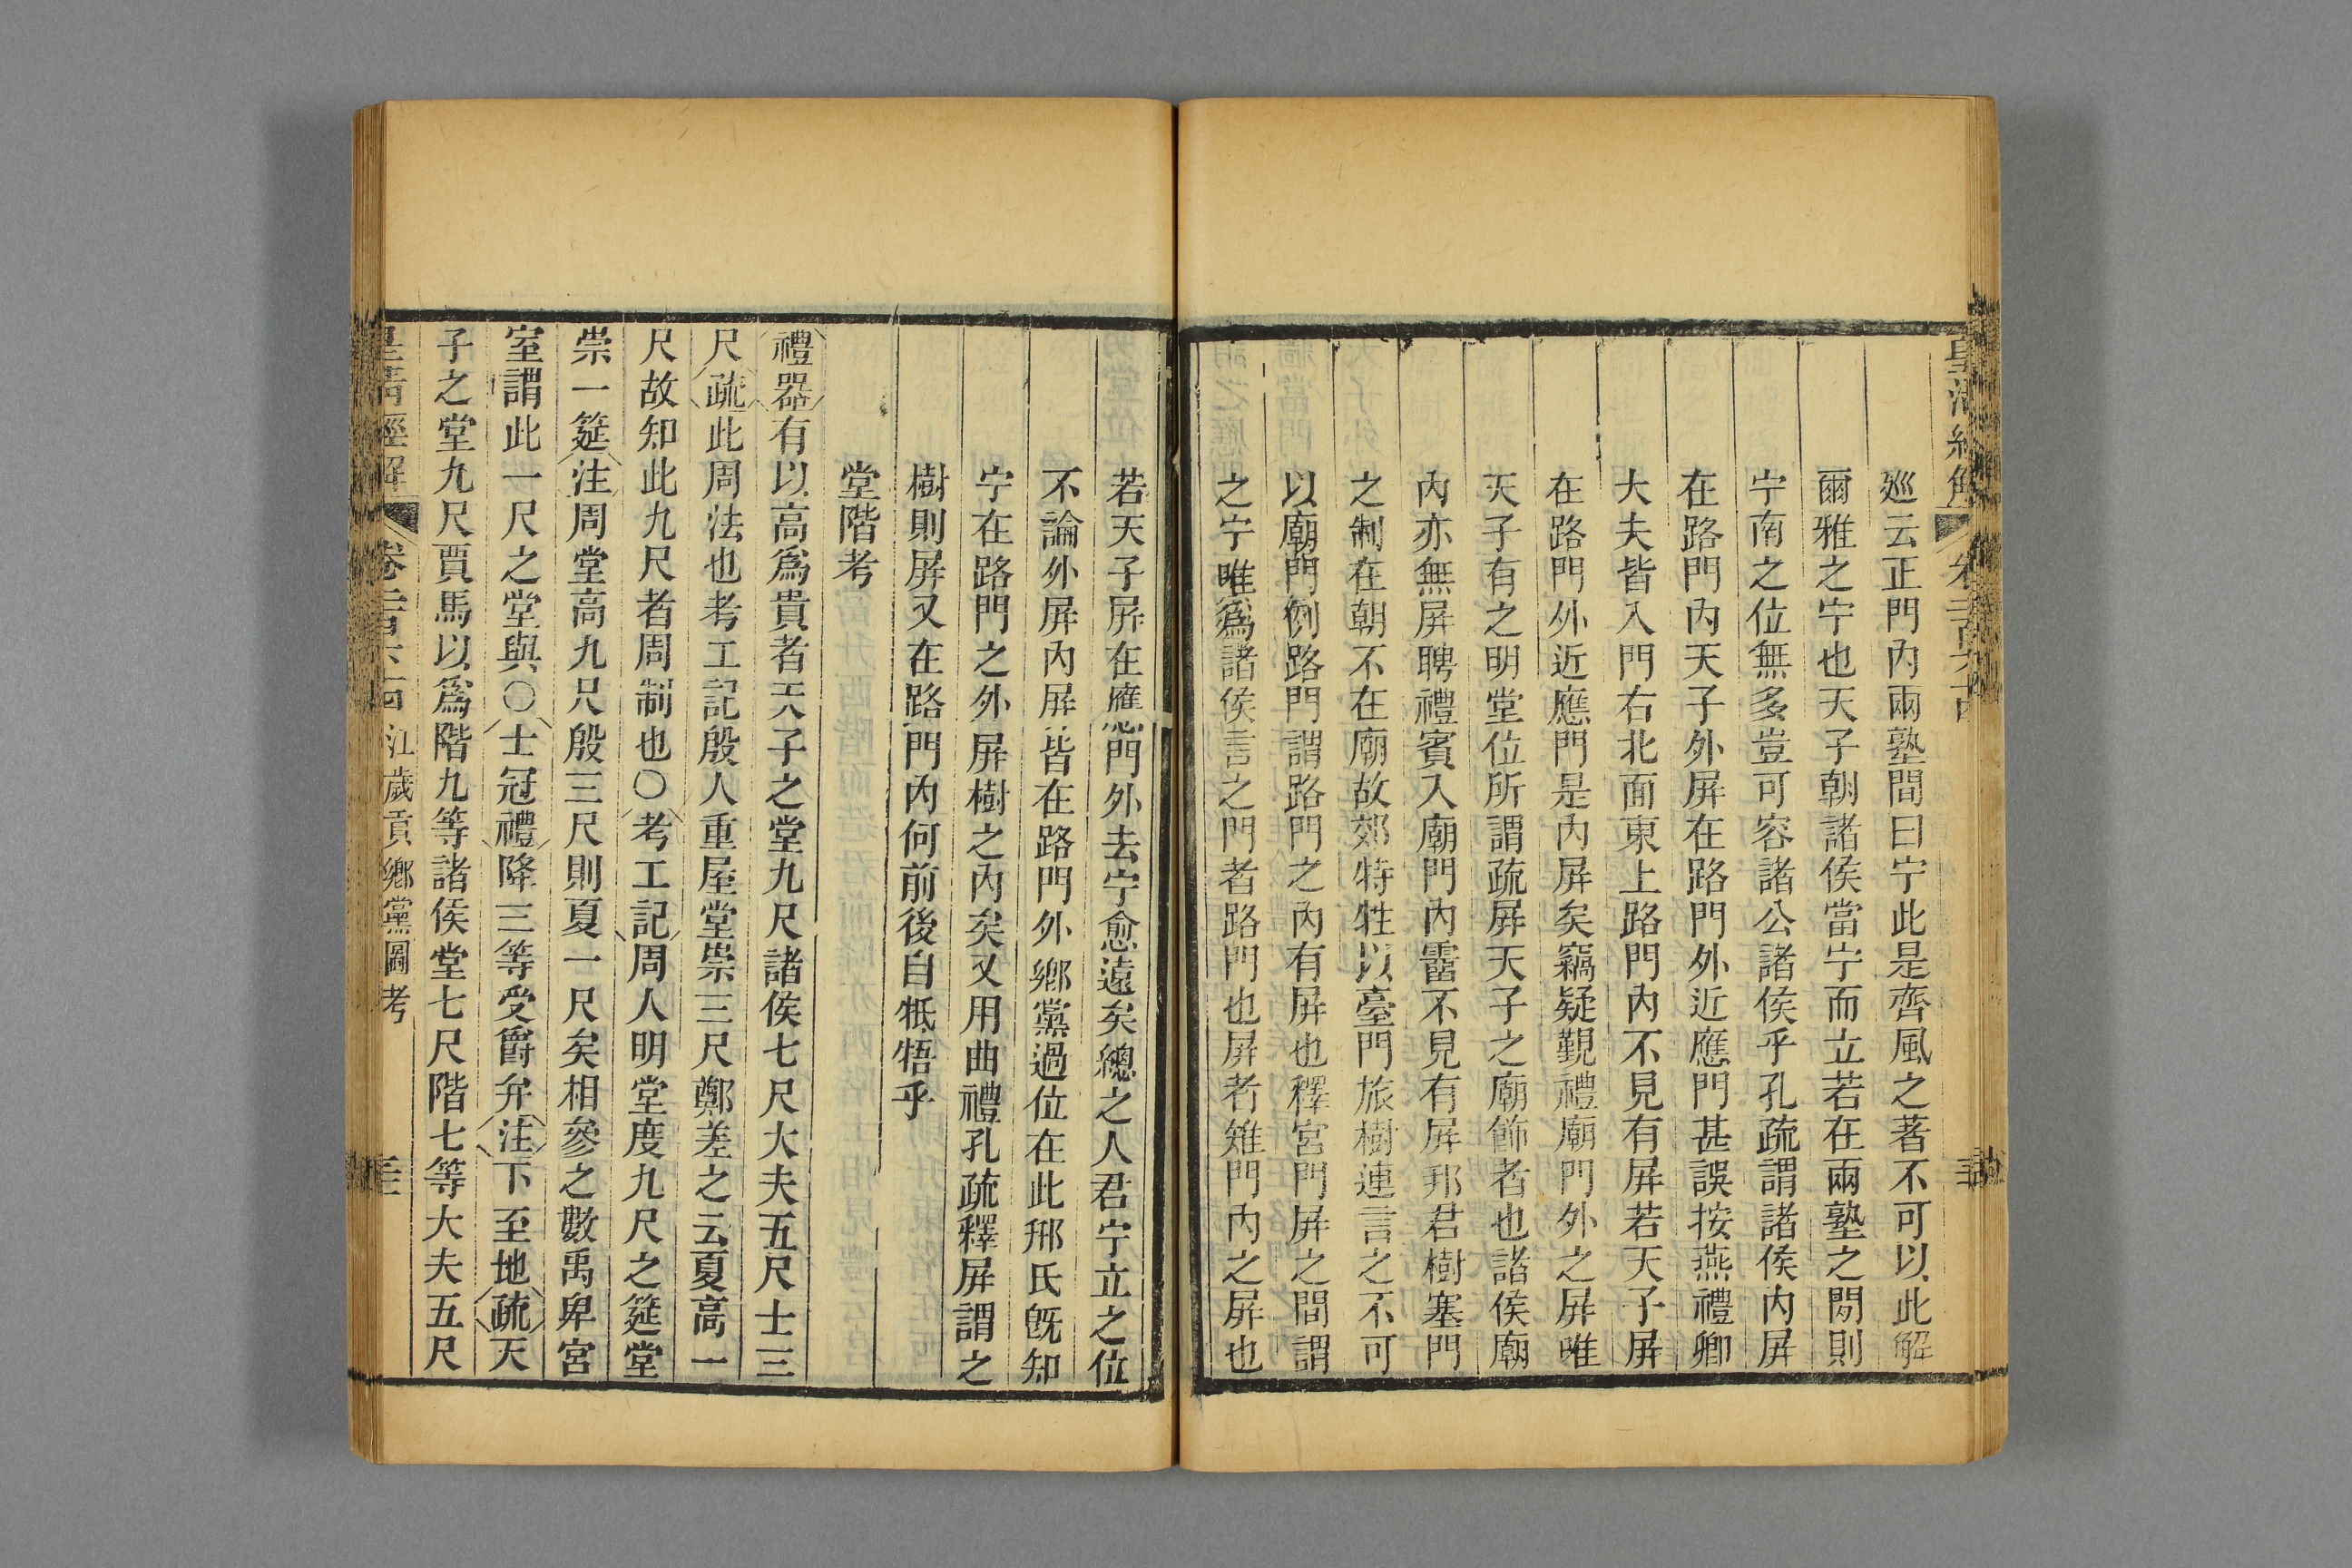 皇清經解
巡云正門内兩塾間曰宁此是齊風之著不可以此解
爾雅之宁也天子朝諸侯當宁而立若在兩塾之閒則
宁南之位無多豈可容諸公諸侯乎孔疏謂諸侯内屏
在路門内天子外屏在路門外近應門甚誤按燕禮卿
大夫皆入門右北面東上路門内不見有屏若天子屏
在路門外近應門是内屏矣竊疑覲禮廟門外之屏唯
天子有之明堂位所謂疏屏天子之廟飾者也諸侯廟
内亦無屏聘禮賓入廟門内霤不見有屏邦君樹塞門
之制在朝不在廟故郊特牲以臺門旅樹連言之不可
以廟門例路門謂路門之内有屏也釋宮門屏之間謂
之宁唯爲諸侯言之門者路門也屏者雉門内之屏也
若天子屏在應門外去宁愈遠矣總之人君宁立之位
不論外屏内屏皆在路門外鄉黨過位在此邢氏旣知
宁在路門之外屏樹之内矣又用曲禮孔疏釋屏謂之
樹則屏又在路門内何前後自牴牾乎
堂階考
禮器有以高爲貴者天子之堂九尺諸侯七尺大夫五尺士三
尺疏此周法也考工記殷人重屋堂崇三尺鄭差之云夏高一
尺故知此九尺者周制也○考工記周人明堂度九尺之筵堂
崇一筵注周堂高九尺殷三尺則夏一尺矣相參之數禹卑宮
室謂此一尺之堂與○士冠禮降三等受爵弁注下至地疏天
子之堂九尺賈馬以爲階九等諸侯堂七尺階七等大夫五尺
皇清經解 卷二百六十四 江歲貢鄉黨圖考